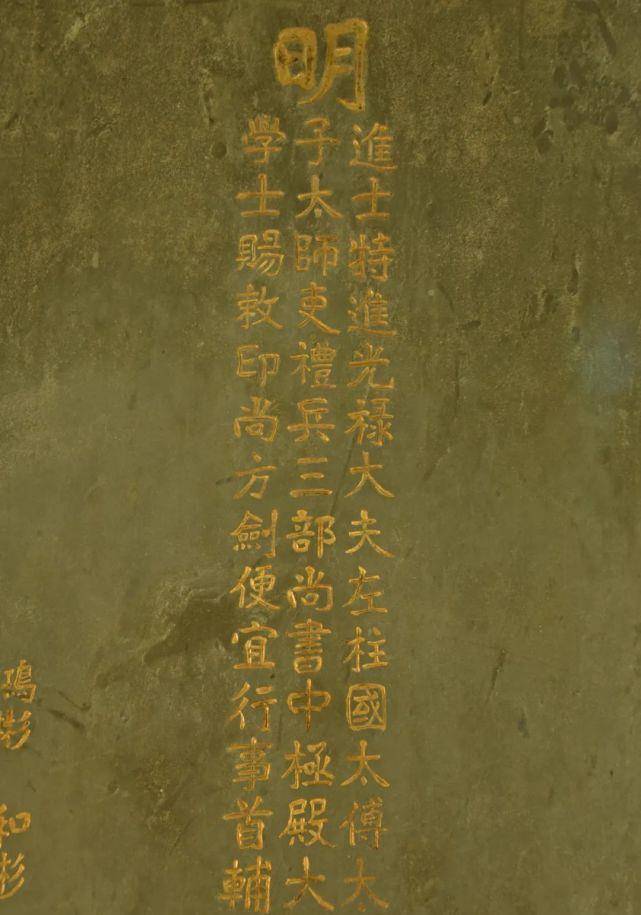 明
進士特進光祿大夫左柱國太傅太
子太師吏禮兵三部尚書中極殿大
學士賜敕印尚方劍便宜行事首輔
鴻彬 和彬